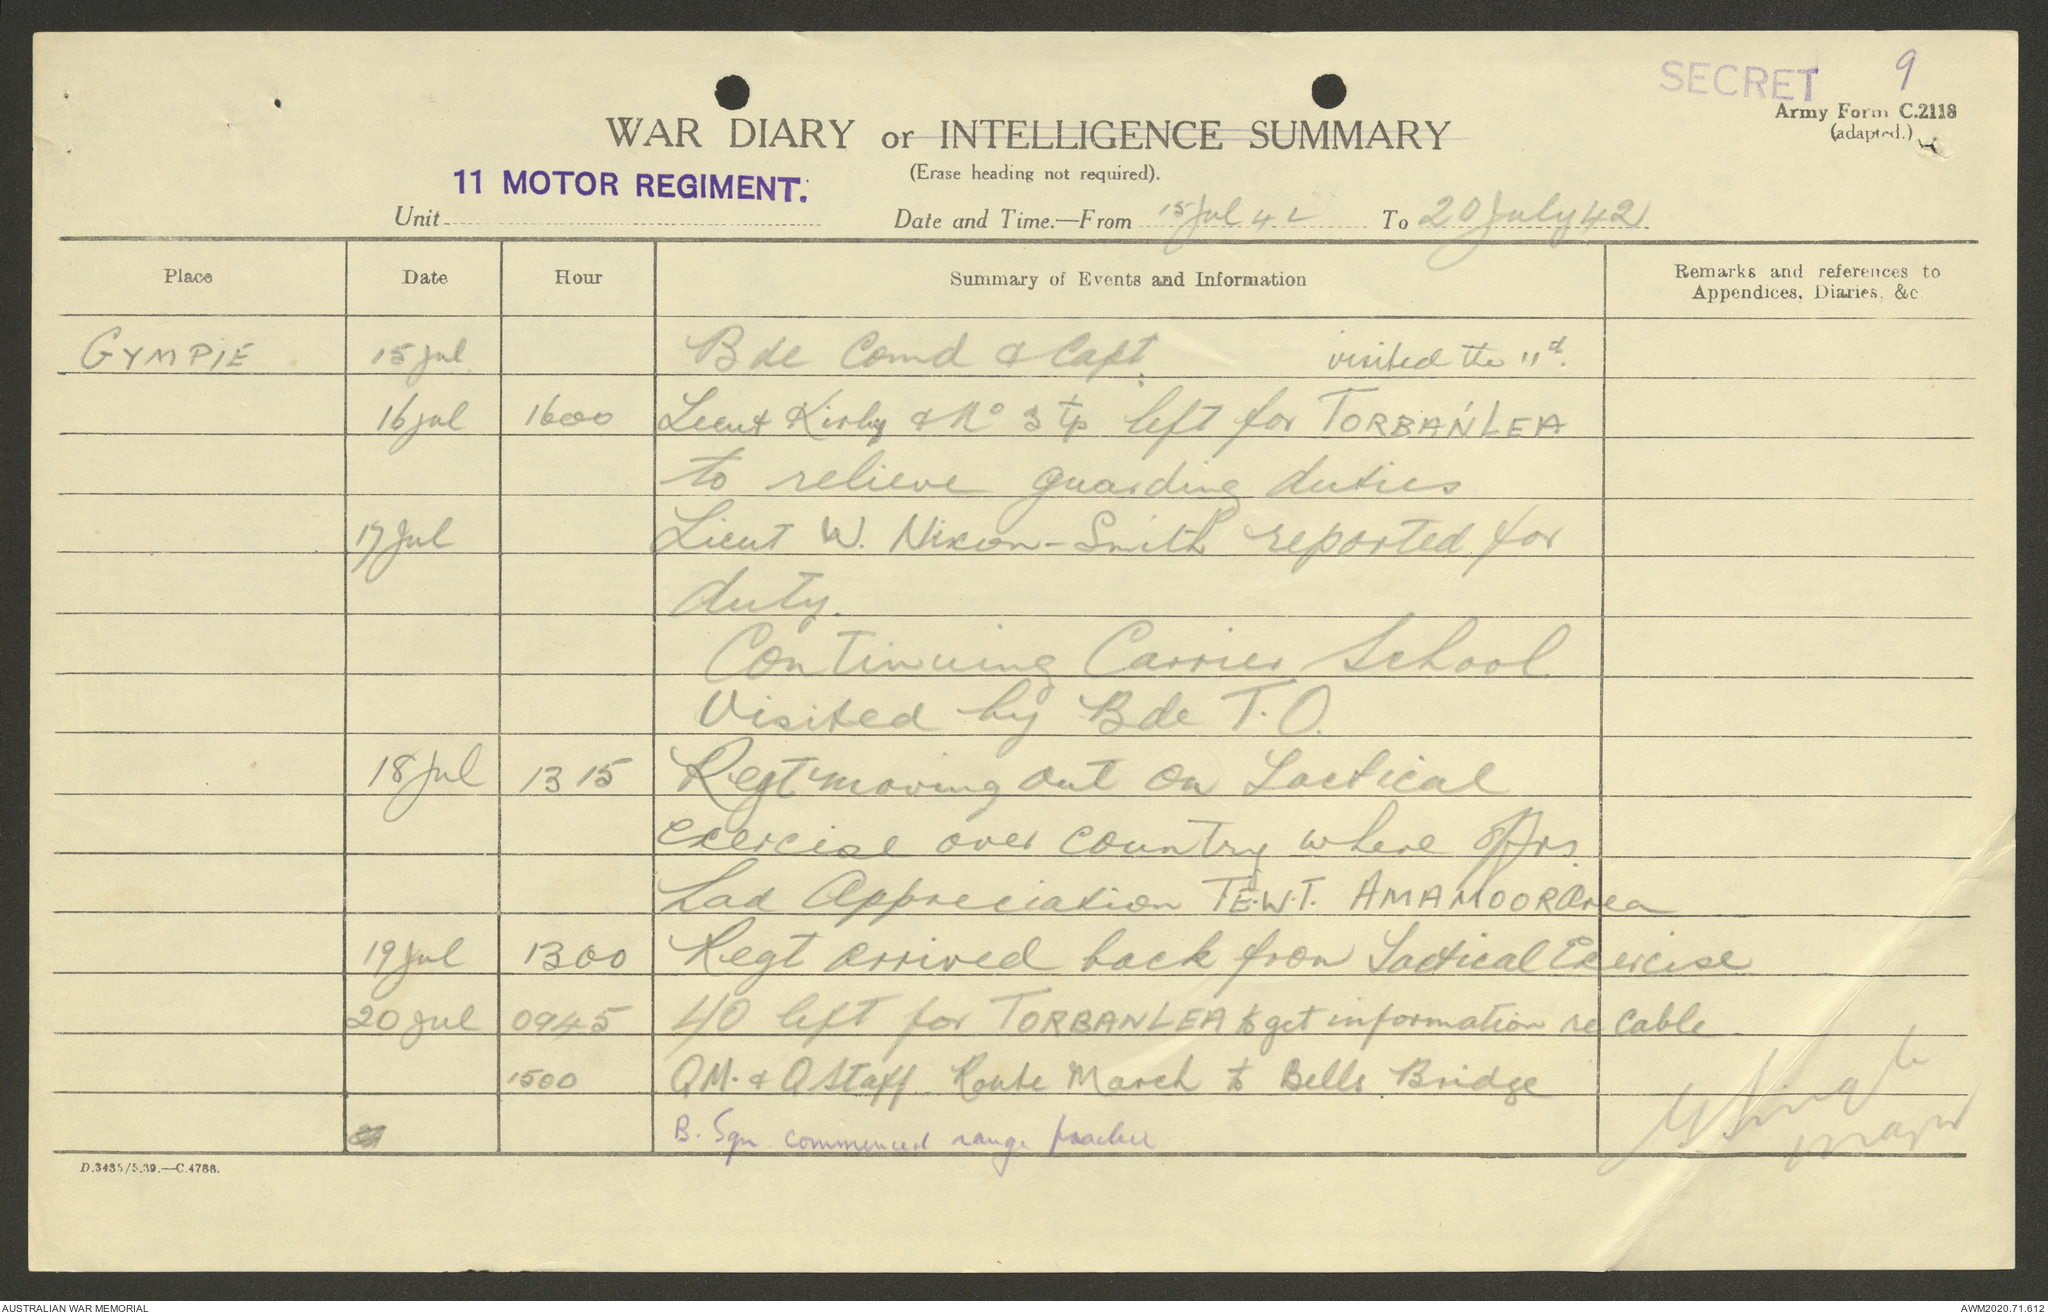 SECRET 9
Army Form C.2118
(adapted.)
WAR DIARY or INTELLIGENCE SUMMARY
(Erase heading not required).
11 MOTOR REGIMENT.
Unit
Date and Time.—From 15 Jul 42 To 20 July 42
Place Date Hour Summary of Events and Information Remarks and references to
Appendices, Diaries, &c
GYMPIE 15 Jul Bde Comd & Capt. visited the 11th.
16 Jul 1600 Lieut Kirby & No 3 tp left for TORBANLEA
to relieve guarding duties
17 Jul Lieut W. Nixon-Smith reported for
duty.
Continuing Carrier School
Visited by Bde T.O.
18 Jul 1315 Regt moving out on Tactical
exercise over country where offrs.
had Appreciation T.E.W.T. AMAMOOR Area
19 Jul 1300 Regt arrived back from Tactical Exercise
20 Jul 0945 I/O left for TORBANLEA to get information re cable
1500 QM. & Q Staff Route March to Bells Bridge
B. Sqn commenced range practice
Major
D.3435/5.39.—C.4786.
AUSTRALIAN WAR MEMORIAL AWM2020.71.612